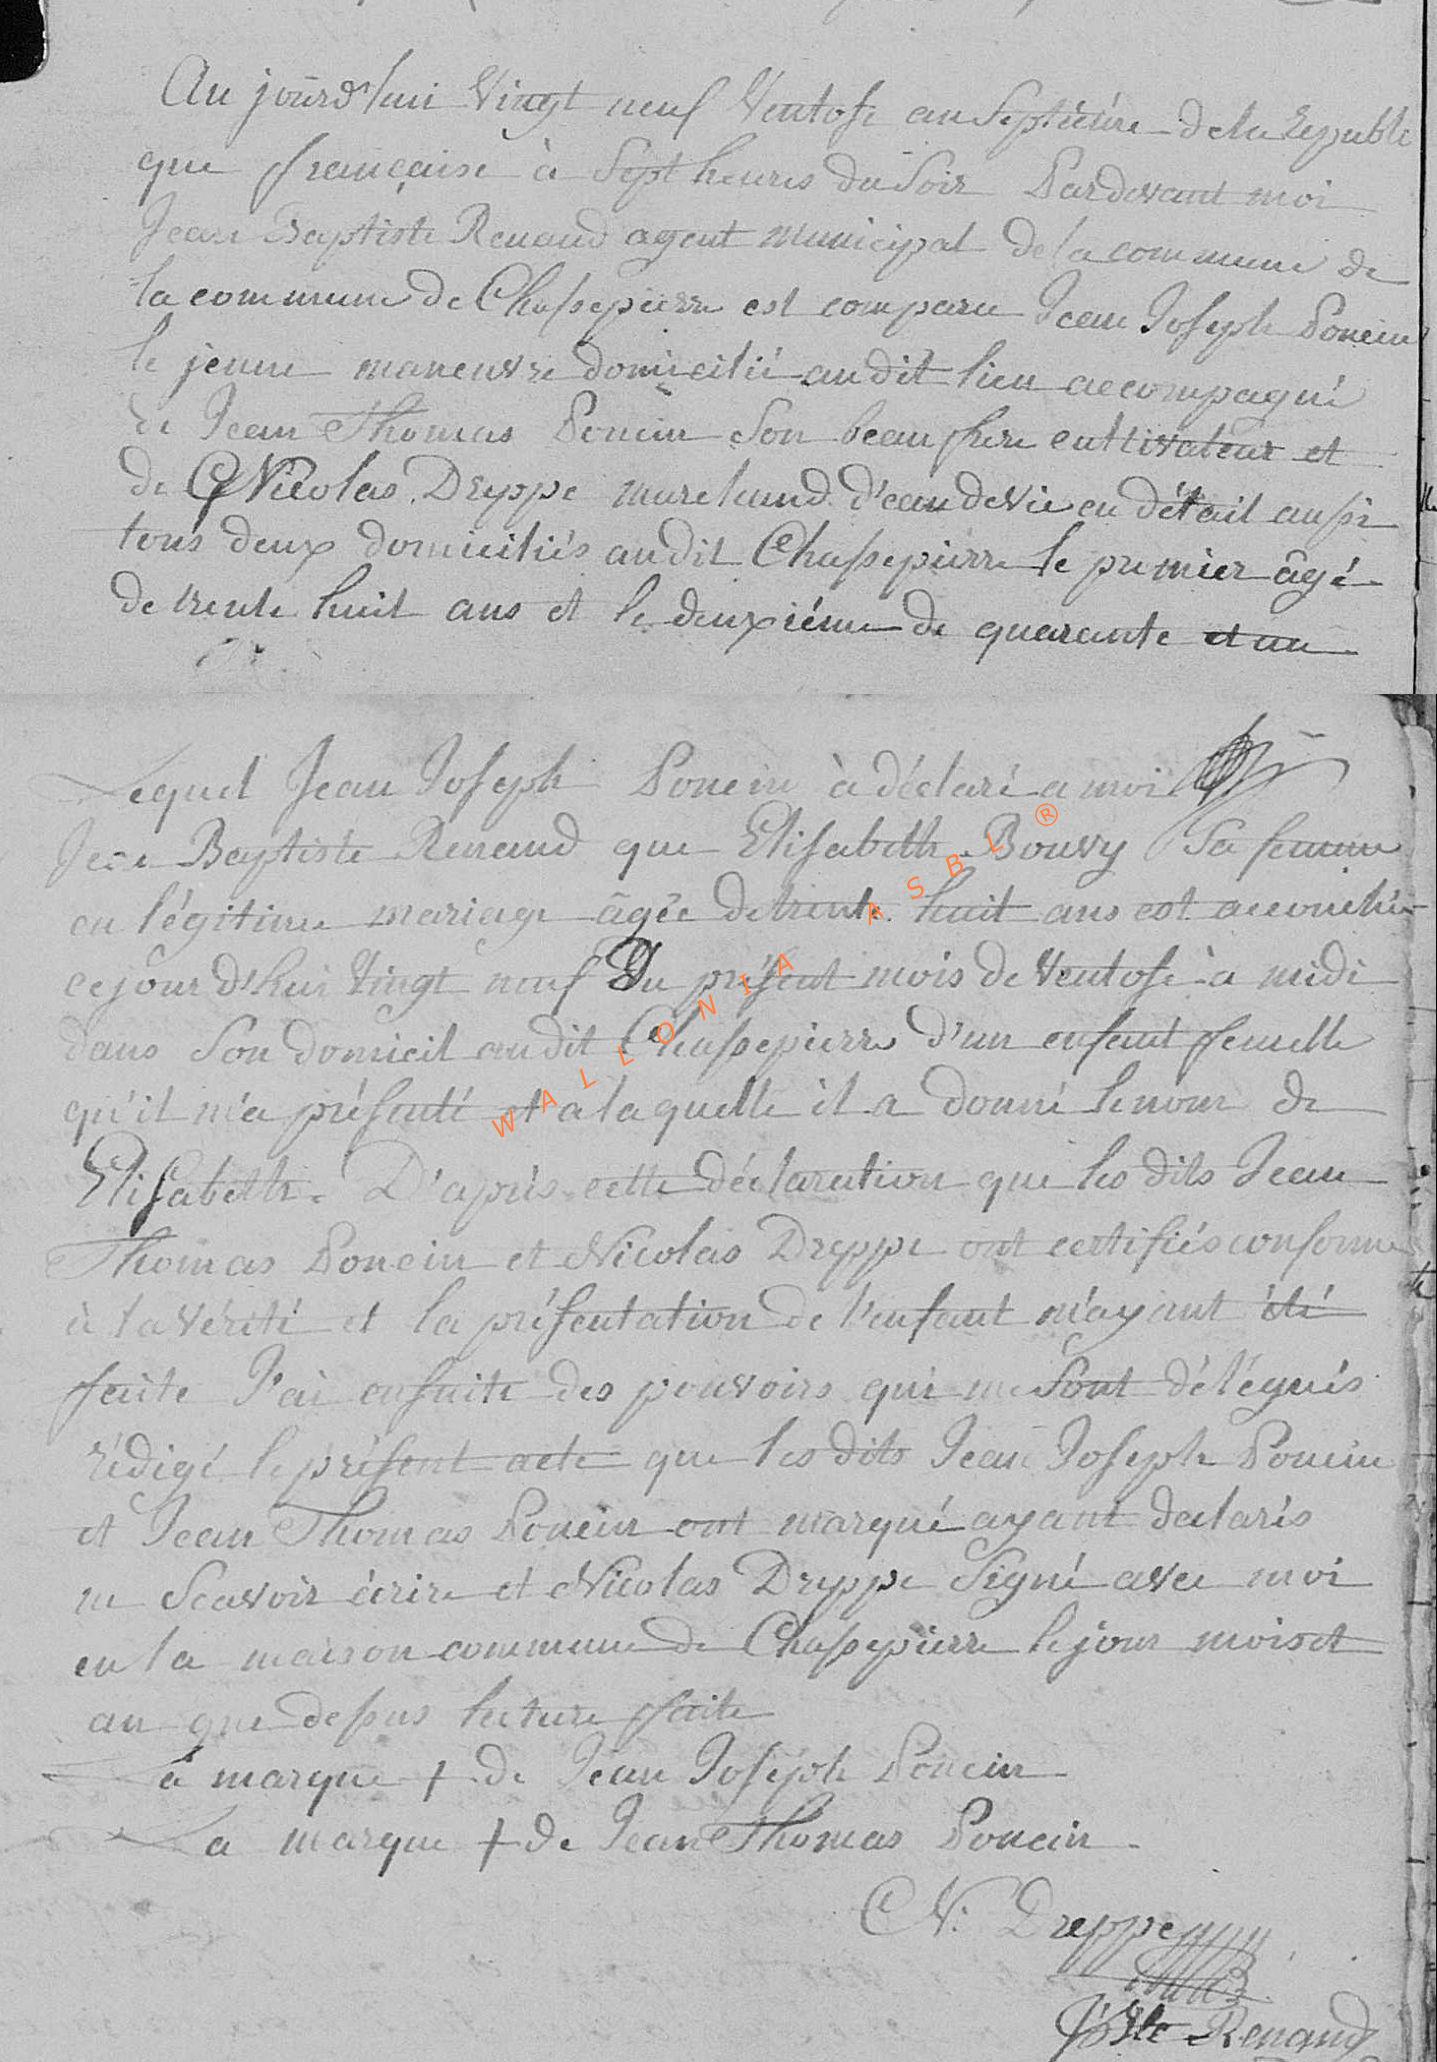 Aujourd'hui Vingt neuf Ventose an Septiéme de la Republi
que française à Sept heures du Soir Pardevant moi
Jean Baptiste Renaud agent municipal de la commune de
la commune de Chassepierre est comparu Jean Joseph Poncin
le jeune maneuvre domicilié audit lieu accompagné
de Jean Thomas Poncin Son beau frere cultivateur et
de Nicolas Dreppe marchand d'eau de vie en détail aussi
tous deux domiciliés audit Chassepierre le premier âgé
de trente huit ans et le deuxiéme de quarante et un
Lequel Jean Joseph Poncin à déclaré a moi
Jean Baptiste Renaud que Elisabeth Bouvy Sa femme
en légitime mariage âgée de trente huit ans est accouchée
cejourd'hui Vingt neuf Du présent mois de Ventose à midi
dans Son domicil audit Chassepierre d'un enfant femelle
qu'il m'a présenté et a laquelle il a donné le nom de
Elisabeth. D'après cette déclaration que les dits Jean
Thomas Poncin et Nicolas Dreppe ont certifiés conforme
à la Vérité et la présentation de l'enfant m'ayant été
faite J'ai ensuite des pouvoirs qui me Sont délégués
rédigé le présent acte que les dits Jean Joseph Poncin
et Jean Thomas Poncin ont marqué ayant declarés
ne Scavoir écrire et Nicolas Dreppe Signé avec moi
en la maison commune de Chassepierre le jour mois et
an que dessus lecture faite
La marque + de Jean Joseph Poncin
La marque + de Jean Thomas Poncin
C N: Dreppe
JBte Renaud
WALLONIA ASBL ®